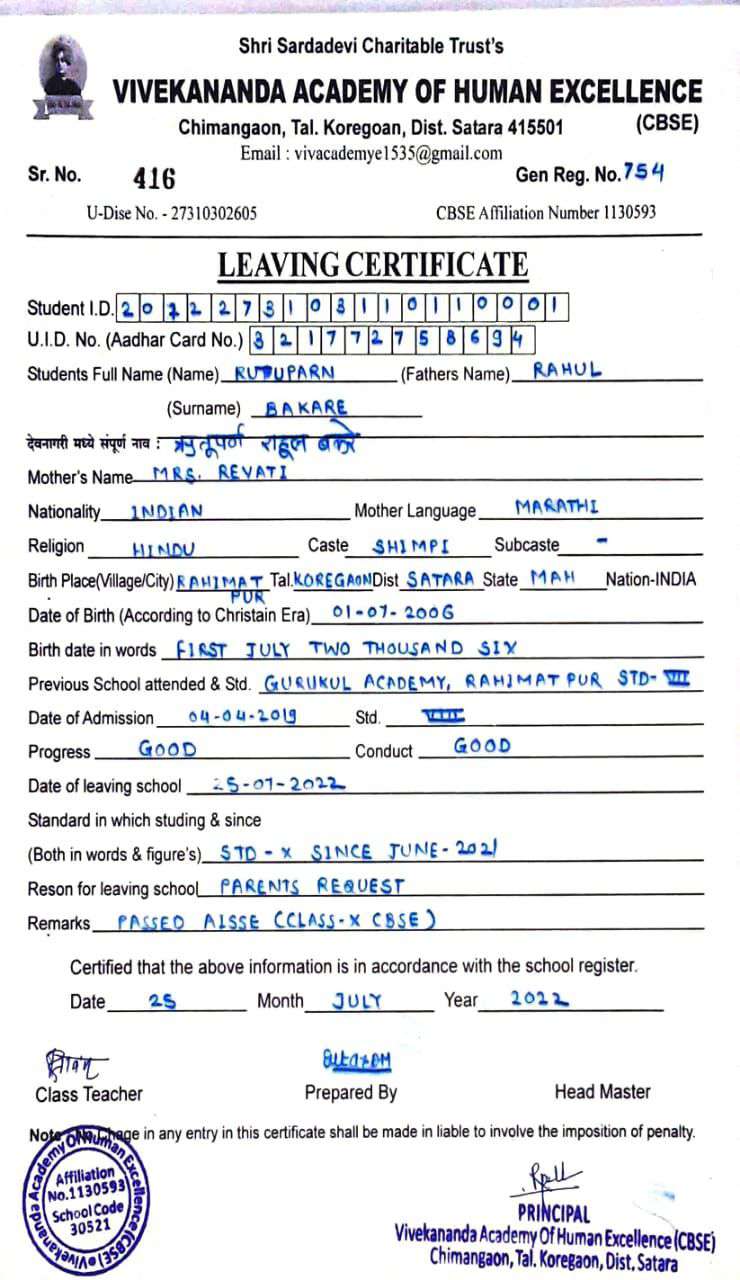 Shri Sardadevi Charitable Trust's
VIVEKANANDA ACADEMY OF HUMAN EXCELLENCE
(CBSE)
Chimangaon, Tal. Koregoan, Dist. Satara 415501
Email : vivacademye1535@gmail.com
Sr. No. 416 Gen Reg. No. 754
U-Dise No. - 27310302605 CBSE Affiliation Number 1130593
LEAVING CERTIFICATE
Student I.D.
U.I.D. No. (Aadhar Card No.) 3 2 1 7 7 2 7 5 8 6 9 4
Students Full Name (Name) RUTUPARN (Fathers Name) RAHUL
(Surname) BAKARE
देवनागरी मध्ये संपूर्ण नाव : ऋतूपर्ण राहूल बकरे
Mother's Name MRS. REVATI
Nationality INDIAN Mother Language MARATHI
Religion HINDU Caste SHIMPI Subcaste -
Birth Place(Village/City) RAHIMAT PUR Tal. KOREGAON Dist SATARA State MAH Nation-INDIA
Date of Birth (According to Christain Era) 01-07-2006
Birth date in words FIRST JULY TWO THOUSAND SIX
Previous School attended & Std. GURUKUL ACADEMY, RAHIMATPUR STD- VII
Date of Admission 04-04-2019 Std. VIII
Progress GOOD Conduct GOOD
Date of leaving school 25-07-2022
Standard in which studing & since
(Both in words & figure's) STD - X SINCE JUNE - 2021
Reson for leaving school PARENTS REQUEST
Remarks PASSED AISSE (CLASS-X CBSE)
Certified that the above information is in accordance with the school register.
Date 25 Month JULY Year 2022
Class Teacher Prepared By Head Master
Note : No Chage in any entry in this certificate shall be made in liable to involve the imposition of penalty.
Vivekananda Academy Of Human Excellence (CBSE)
Affiliation
No.1130593
School Code
30521
PRINCIPAL
Vivekananda Academy Of Human Excellence (CBSE)
Chimangaon, Tal. Koregaon, Dist. Satara